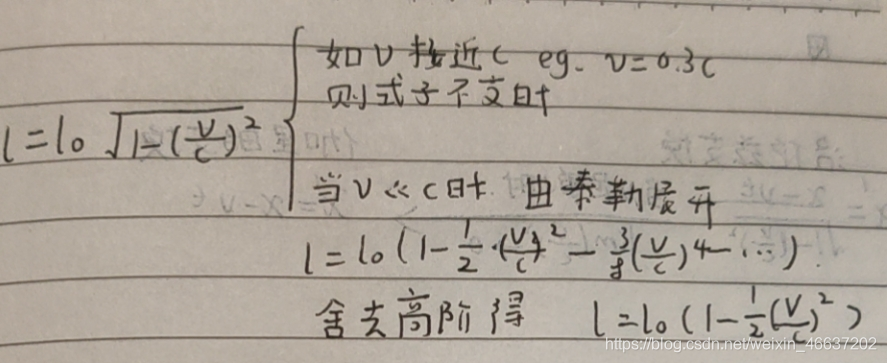 如 v 接近 c eg. v=0.3c
则式子不变
l = l₀ √(1-(v/c)²)
当 v << c 时. 由泰勒展开
l = l₀ (1 - 1/2 ·(v/c)² - 3/8 (v/c)⁴ - ...)
舍去高阶得 l = l₀ (1 - 1/2 (v/c)²)
https://blog.csdn.net/weixin_46637202